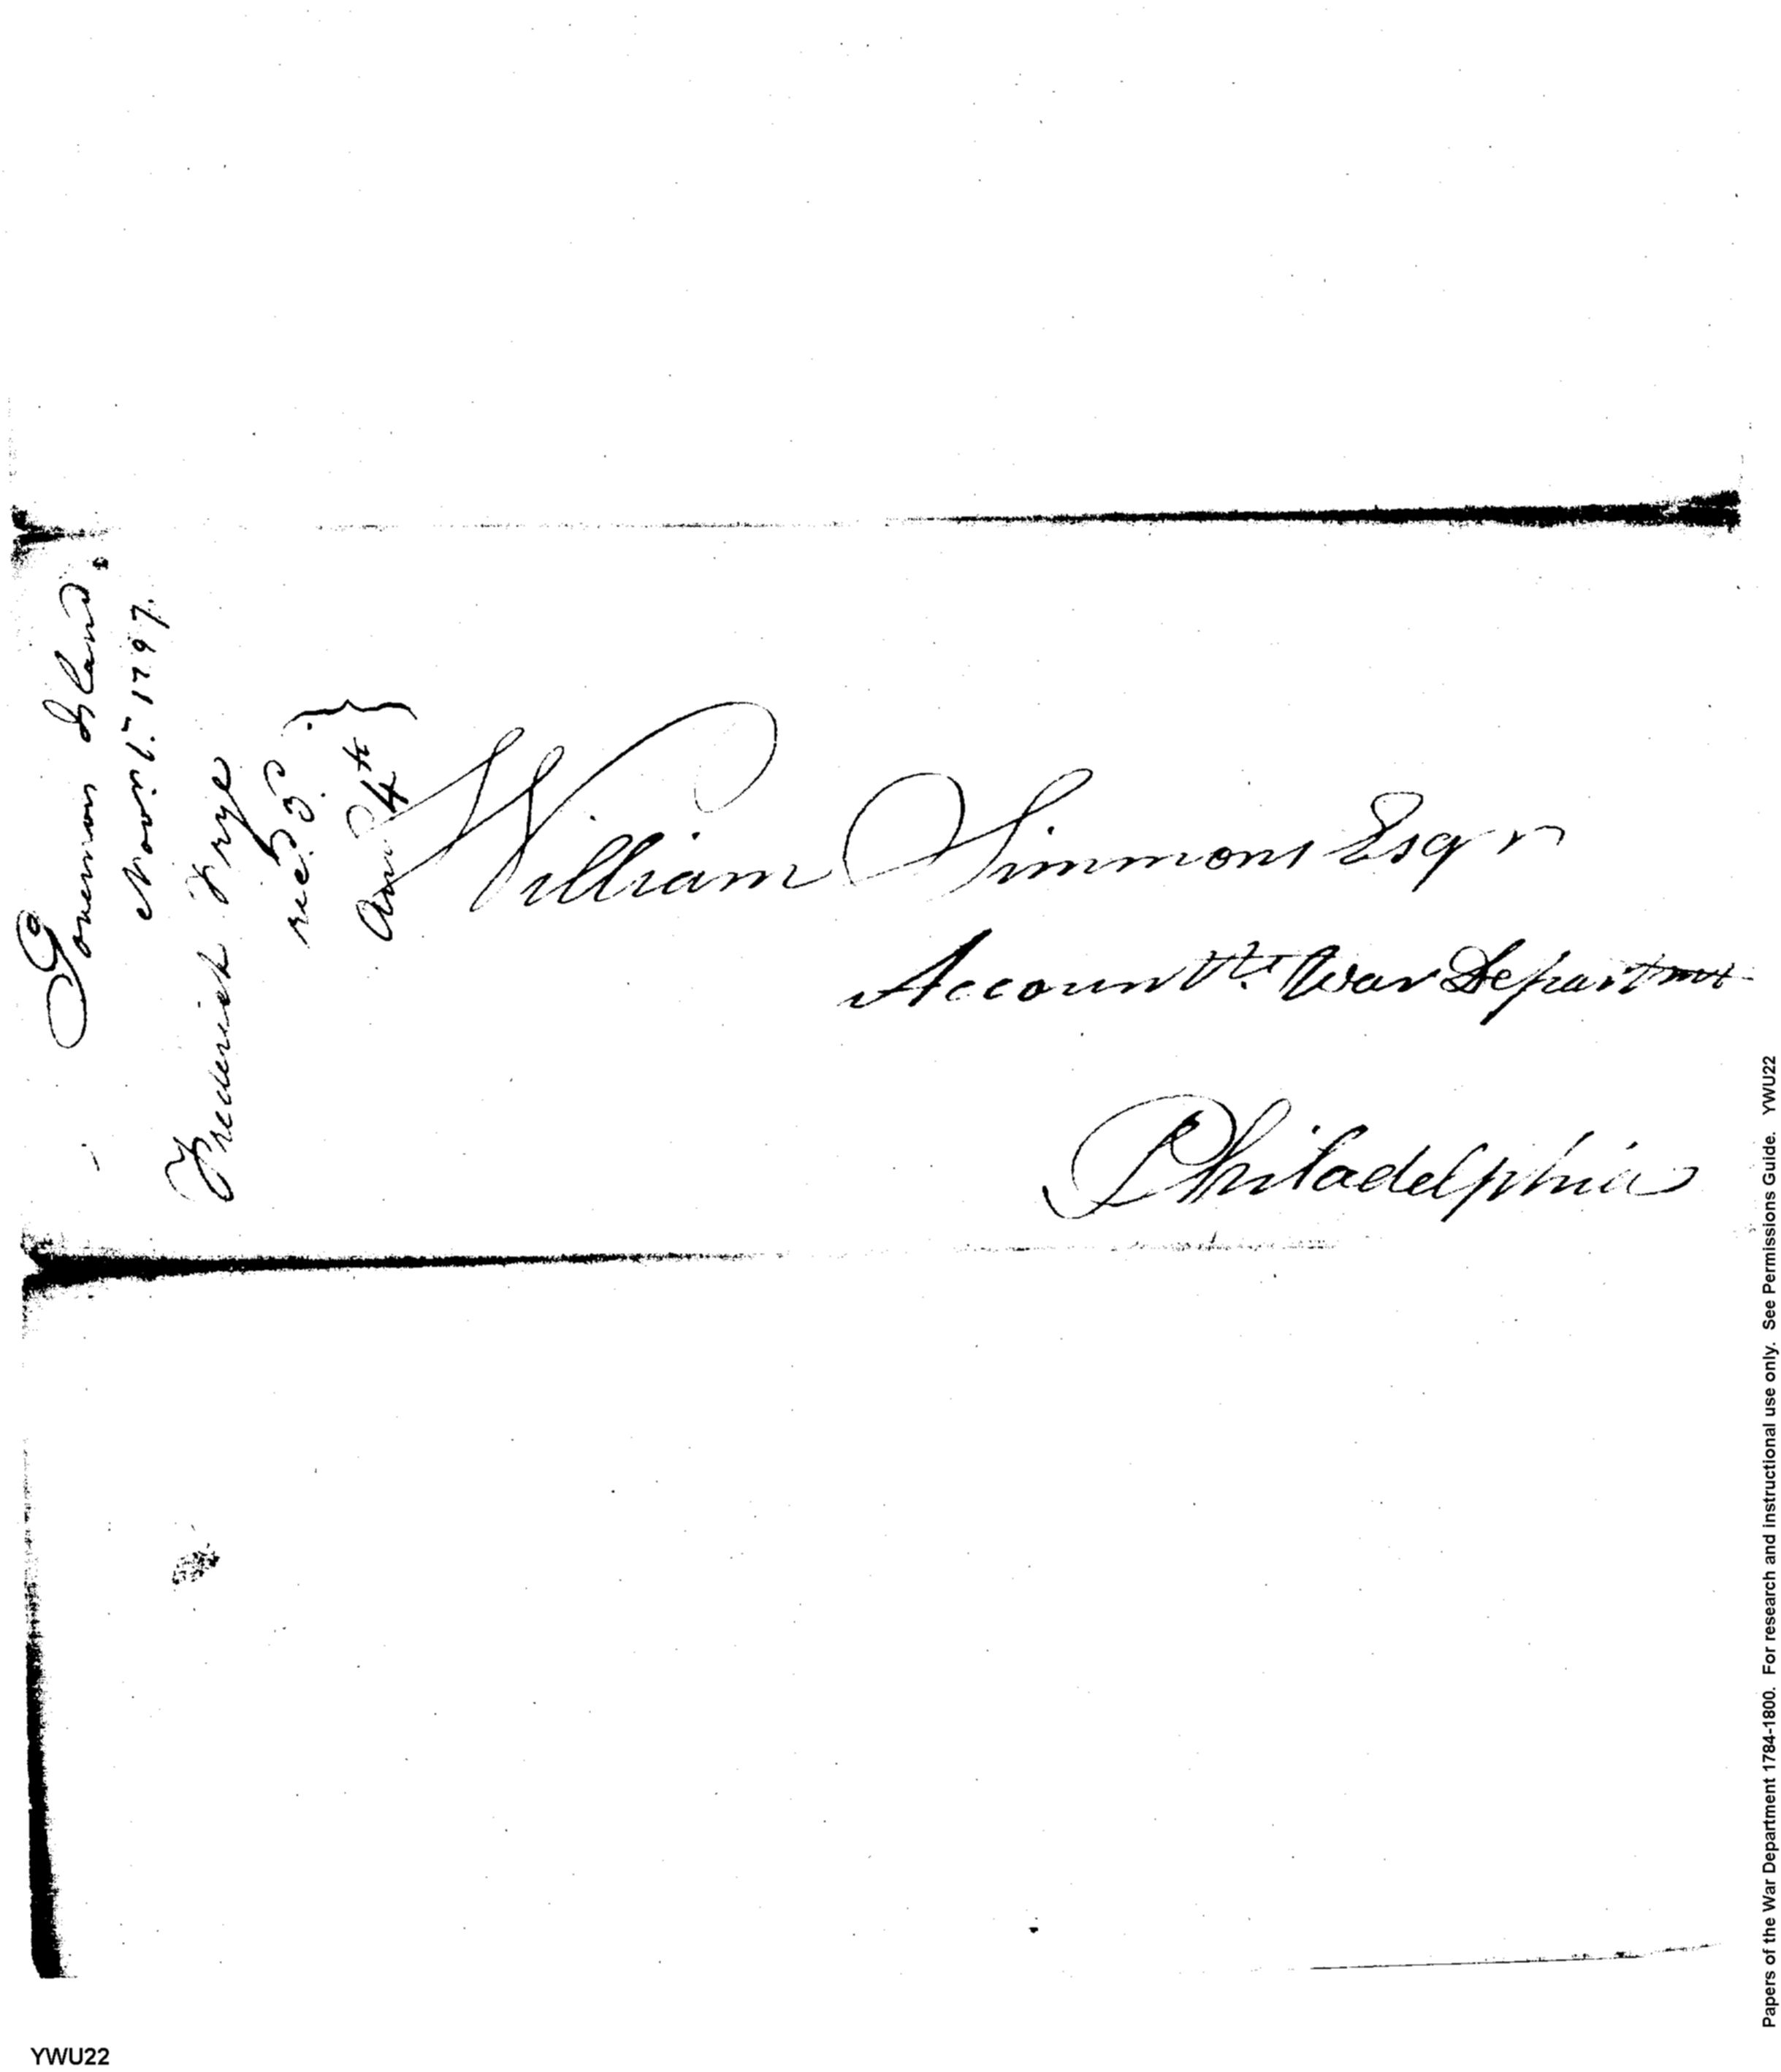 Governors Island.
Novr. 1st 1797.
Frederick Frye
recd. 3d.
And 4th
William Simmons Esqr
Accountt. War Departmt
Philadelphia
Papers of the War Department 1784-1800. For research and instructional use only. See Permissions Guide. YWU22
YWU22